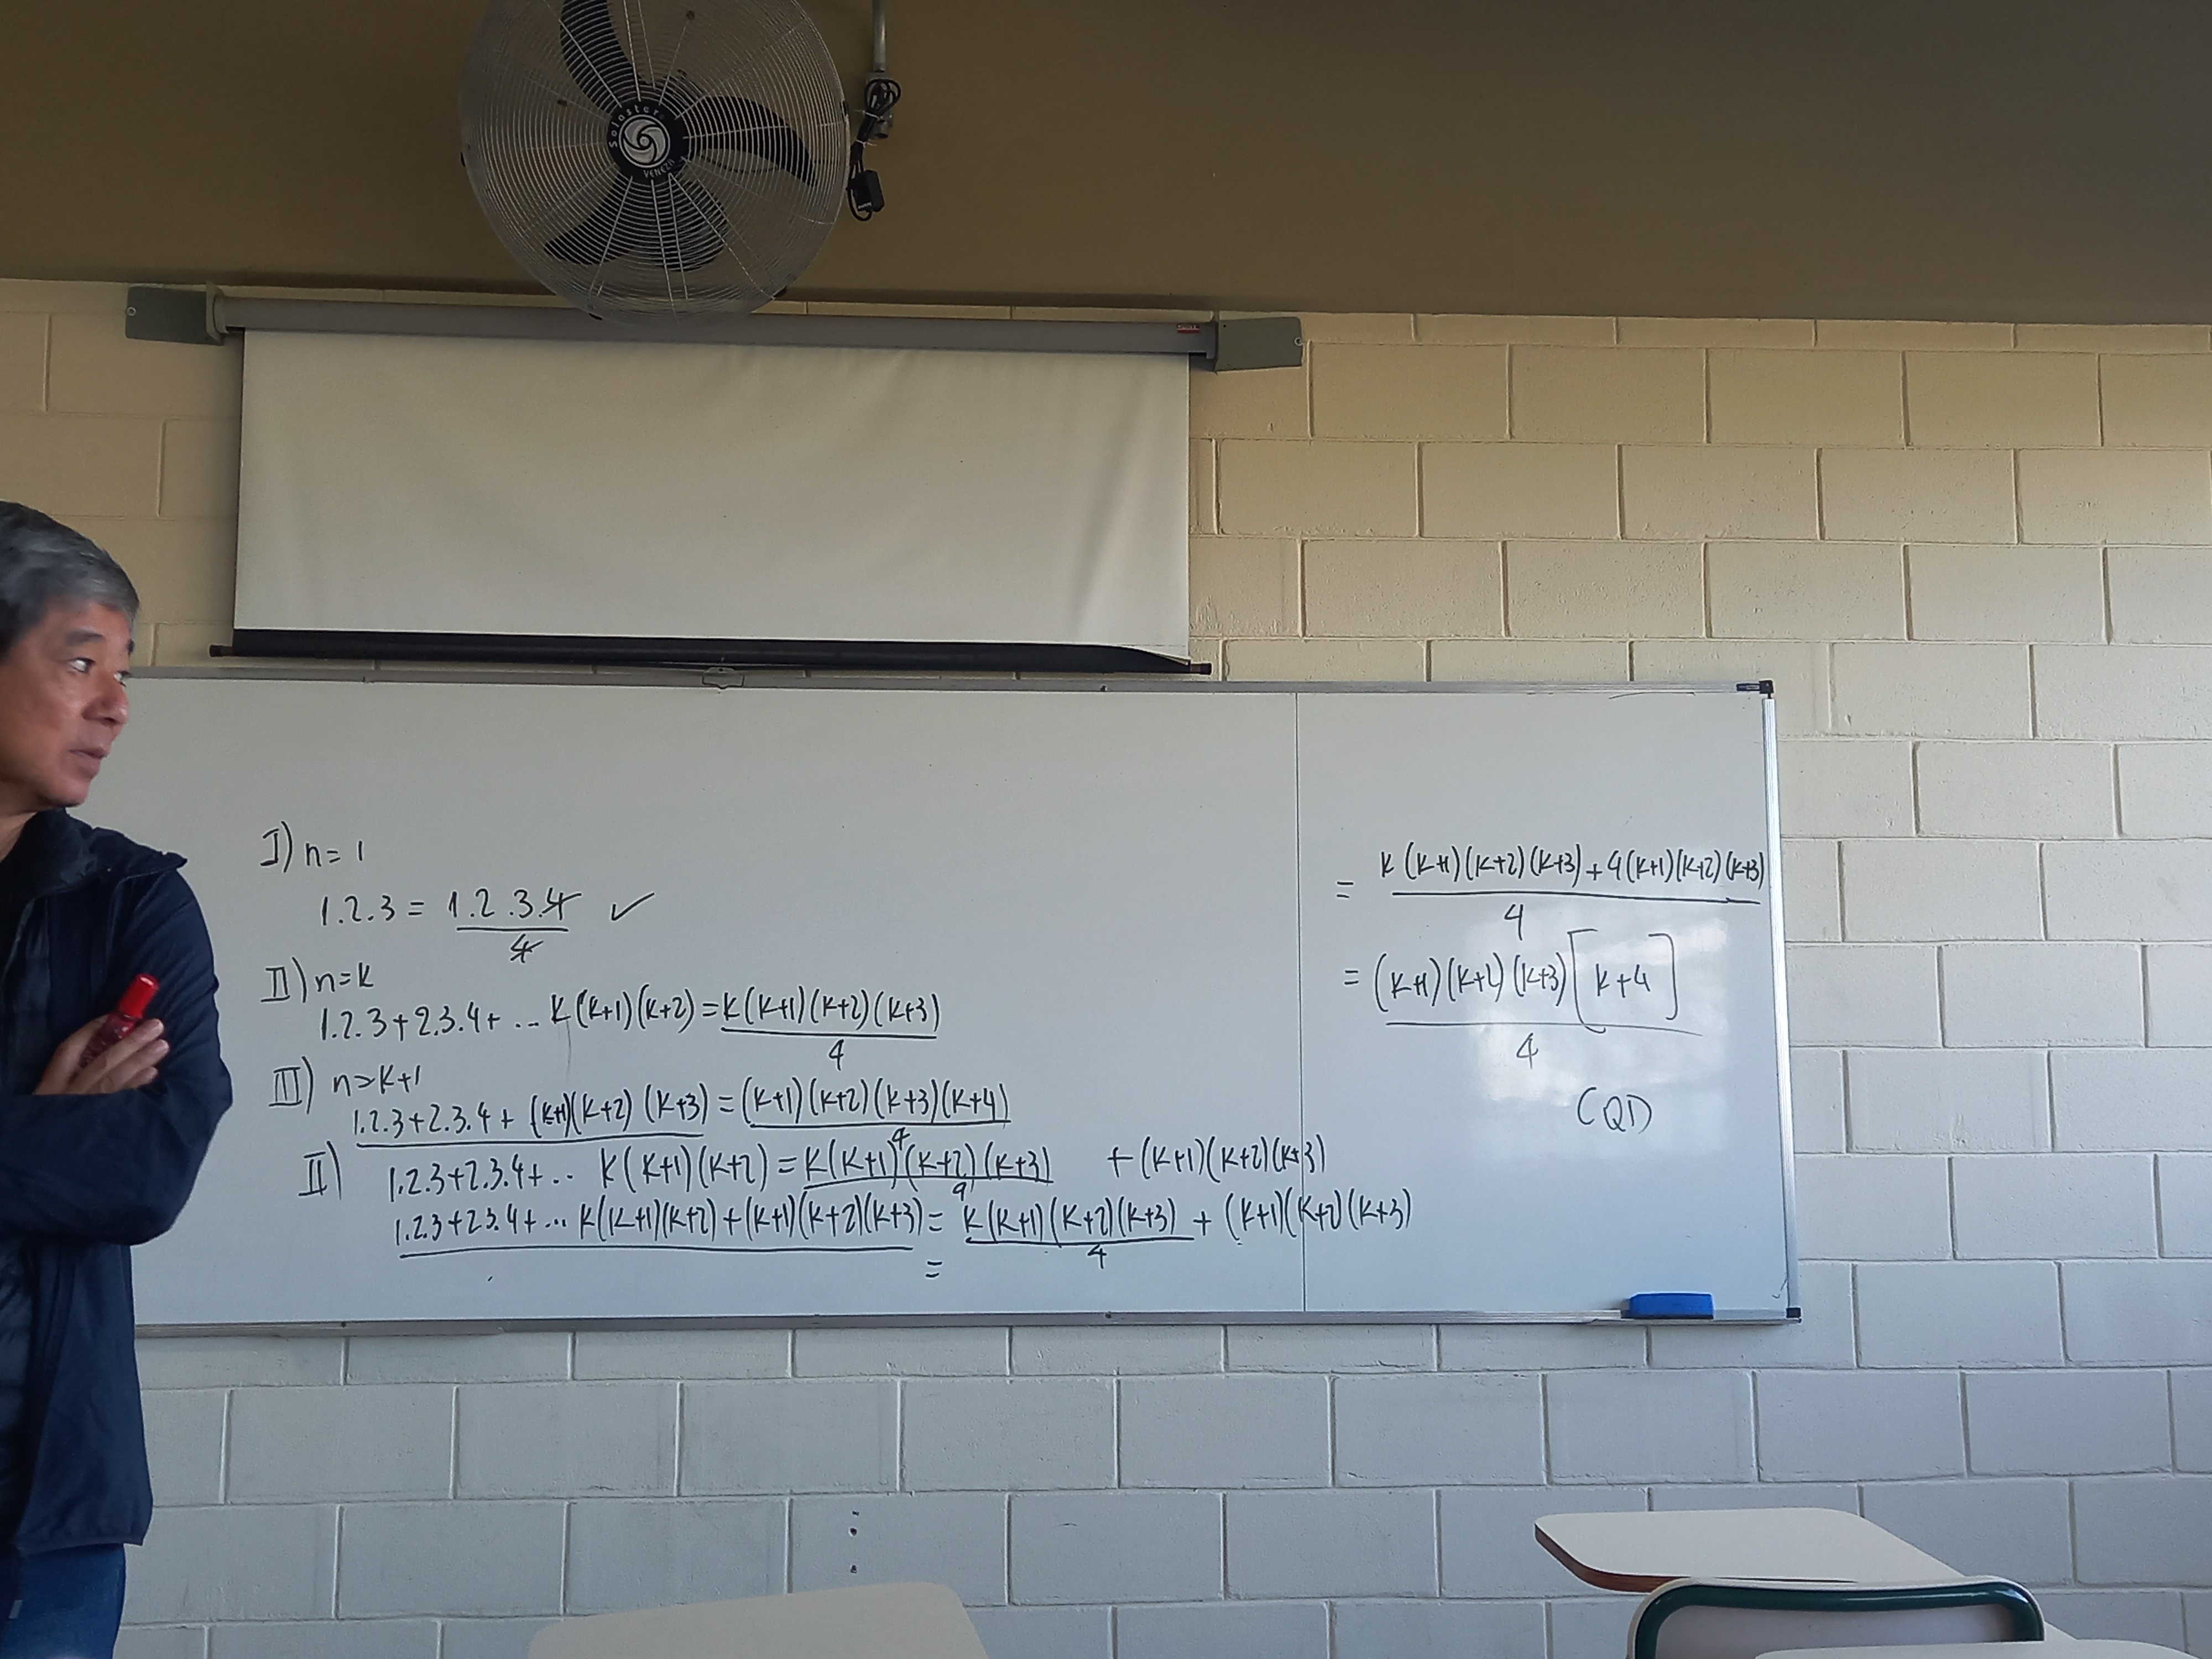 Solaster
VENEZA
I) n=1
1.2.3 = 1.2.3.4 ✓
4
II) n=k
1.2.3+2.3.4+ ... k(k+1)(k+2) = k(k+1)(k+2)(k+3)
4
III) n>k+1
1.2.3+2.3.4+ (k+1)(k+2)(k+3) = (k+1)(k+2)(k+3)(k+4)
4
II) 1.2.3+2.3.4+... k(k+1)(k+2) = k(k+1)(k+2)(k+3) +(k+1)(k+2)(k+3)
4
1.2.3+2.3.4+... k(k+1)(k+2)+(k+1)(k+2)(k+3) = k(k+1)(k+2)(k+3) + (k+1)(k+2)(k+3)
4
=
= k(k+1)(k+2)(k+3)+4(k+1)(k+2)(k+3)
4
= (k+1)(k+2)(k+3)[k+4]
4
CQD